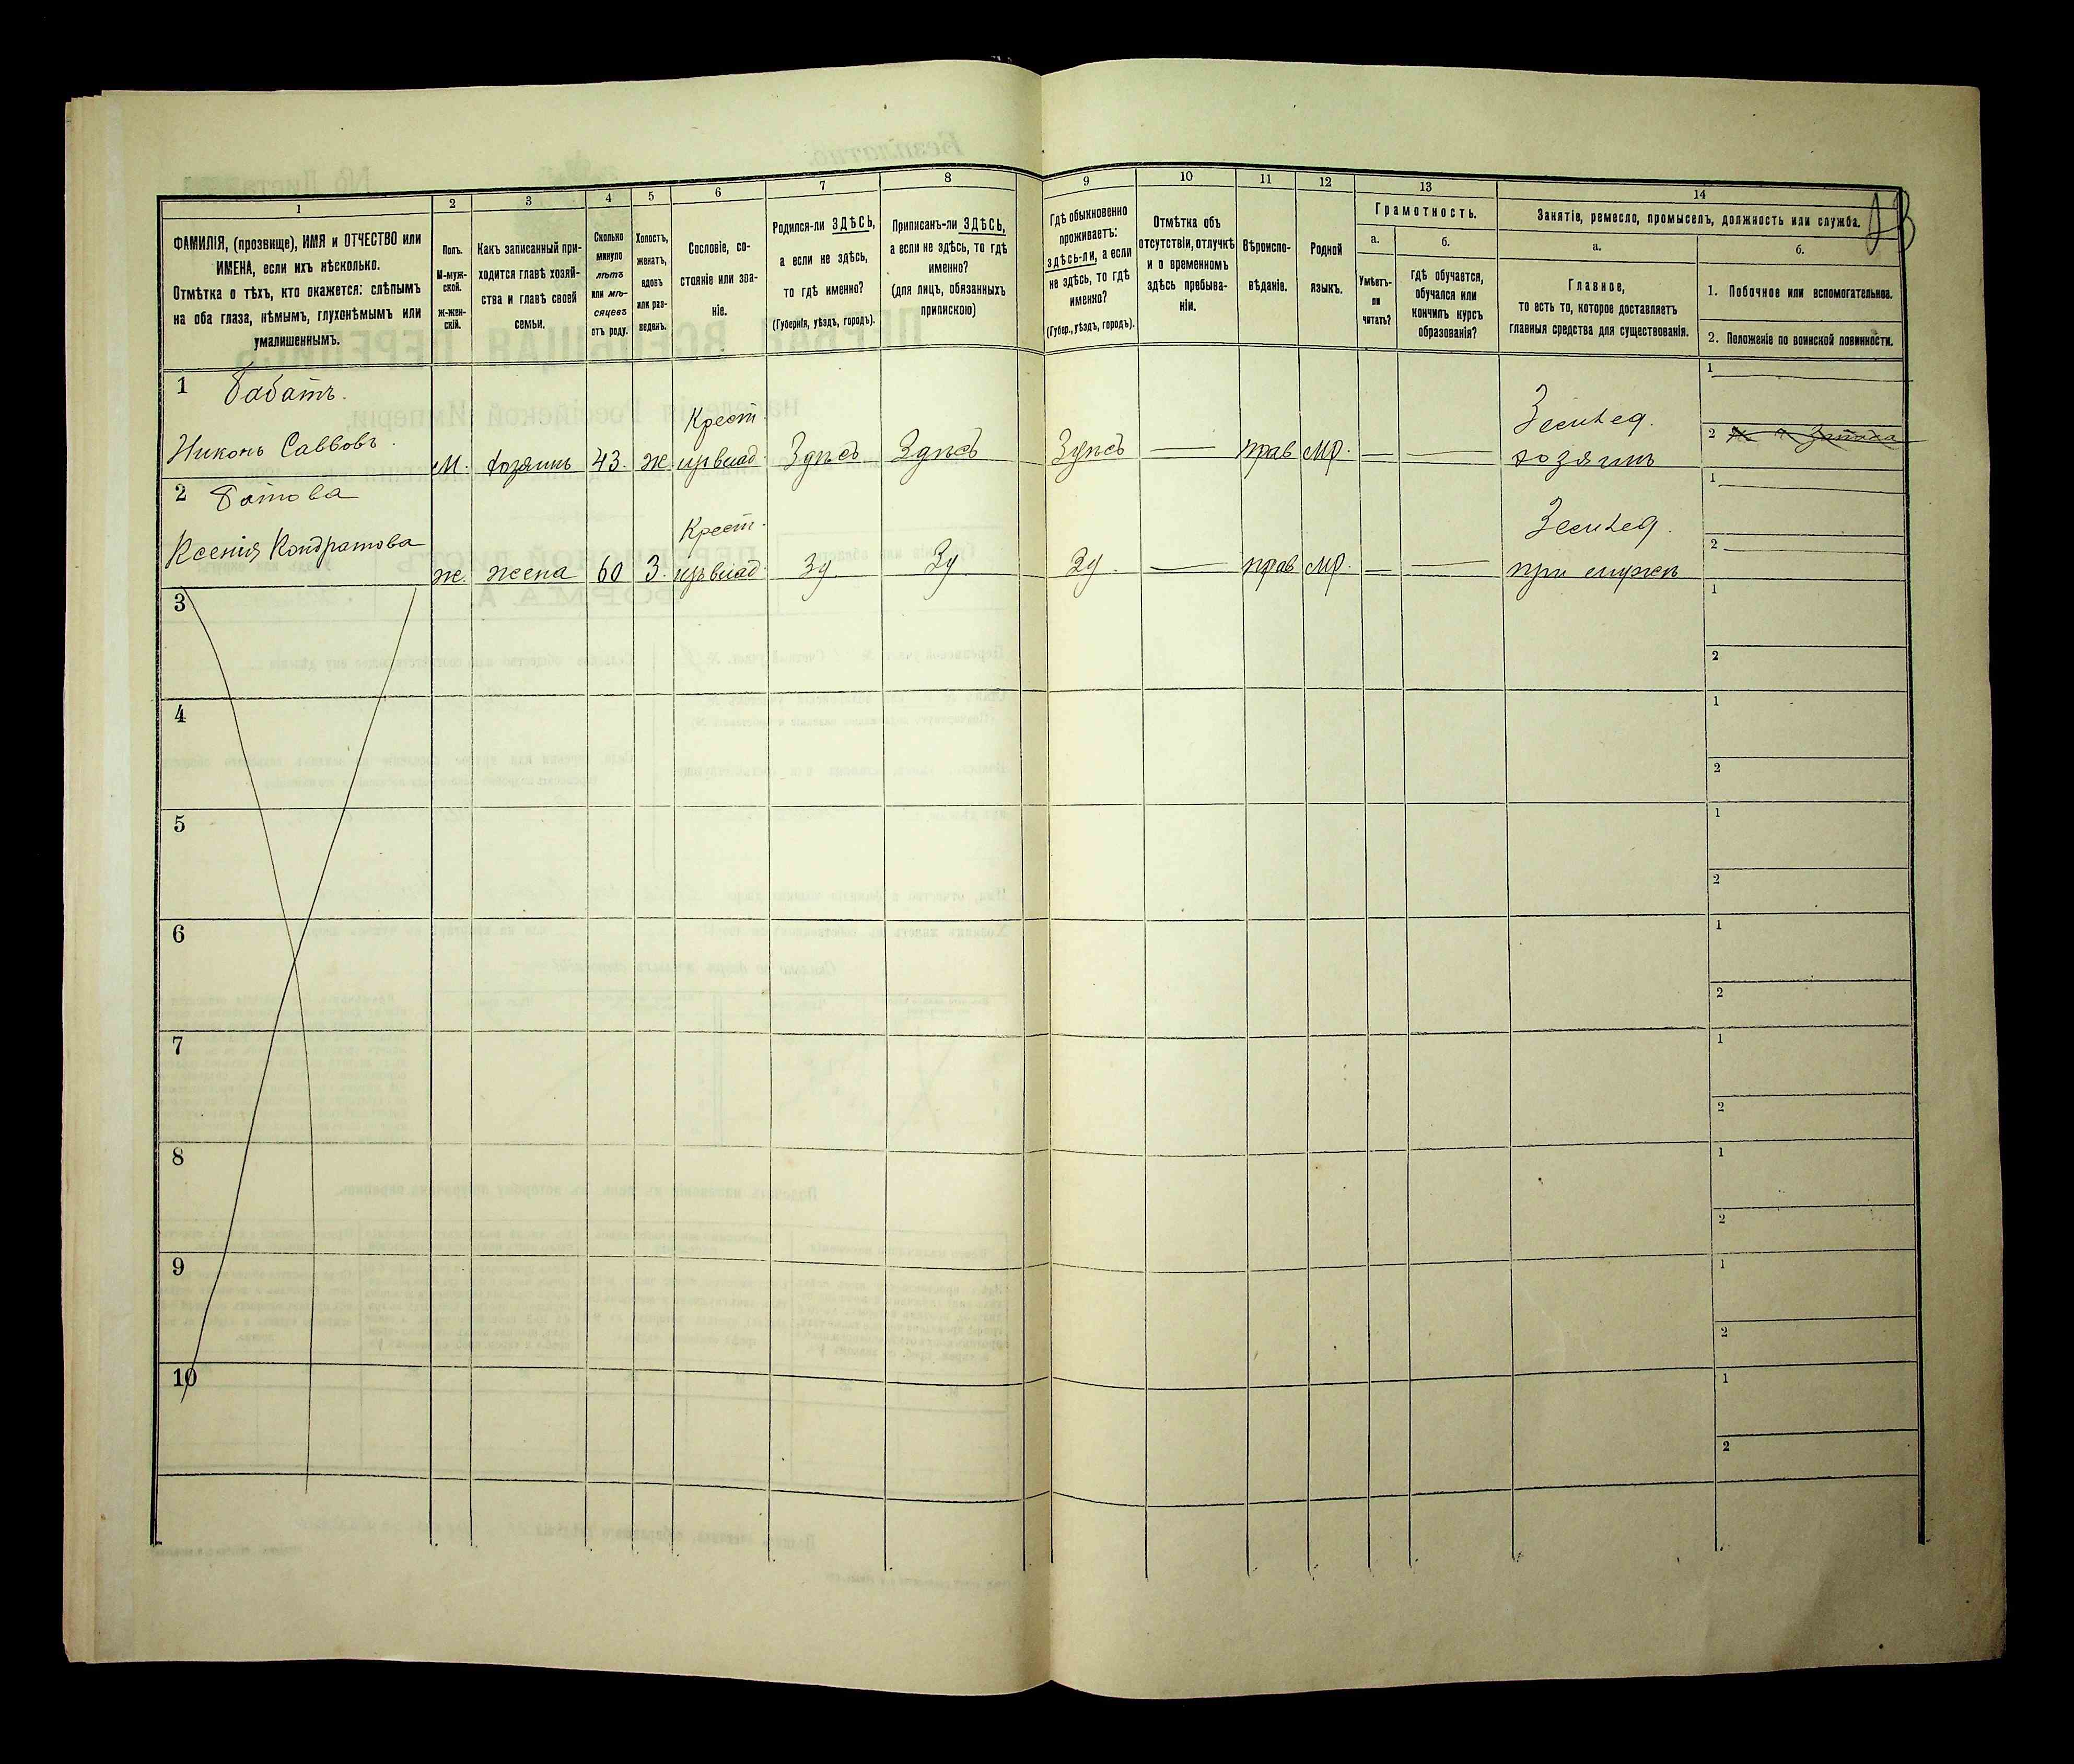 1
2
3
4
5
6
7
8
9
10
11
12
13
14
ФАМИЛІЯ, (прозвище), ИМЯ и ОТЧЕСТВО или
ИМЕНА, если ихъ нѣсколько.
Отмѣтка о тѣхъ, кто окажется: слѣпымъ
на оба глаза, нѣмымъ, глухонѣмымъ или
умалишеннымъ.
Полъ.
М-муж-
ской.
Ж-жен-
скій.
Какъ записанный при-
ходится главѣ хозяй-
ства и главѣ своей
семьи.
Сколько
минуло
лѣтъ
или мѣ-
сяцевъ
отъ роду.
Холостъ,
женатъ,
вдовъ
или раз-
веденъ.
Сословіе, со-
стояніе или зва-
ніе.
Родился-ли ЗДѢСЬ,
а если не здѣсь,
то гдѣ именно?
(Губернія, уѣздъ, городъ).
Приписанъ-ли ЗДѢСЬ,
а если не здѣсь, то гдѣ
именно?
(для лицъ, обязанныхъ
припискою)
Гдѣ обыкновенно
проживаетъ:
здѣсь-ли, а если
не здѣсь, то гдѣ
именно?
(Губер., уѣздъ, городъ).
Отмѣтка объ
отсутствіи, отлучкѣ
и о временномъ
здѣсь пребыва-
ніи.
Вѣроиспо-
вѣданіе.
Родной
языкъ.
Грамотность.
а.
Умѣетъ-
ли
читать?
б.
гдѣ обучается,
обучался или
кончилъ курсъ
образованія?
Занятіе, ремесло, промыселъ, должность или служба.
а.
Главное,
то есть то, которое доставляетъ
главныя средства для существованія.
б.
1. Побочное или вспомогательное.
2. Положеніе по воинской повинности.
1
Никонъ Саввовъ.
М. хозяинъ 43. ж. Крест. Здѣсь Здѣсь Здѣсь — прав мр. — — Землед. хозяинъ
1
2
2
Ксенія Кондратова
ж. жена 60 З. Крест. Зд. Зд Зд. — прав мр. — — Землед. при мужѣ
1
2
3
1
2
4
1
2
5
1
2
6
1
2
7
1
2
8
1
2
9
1
2
10
1
2